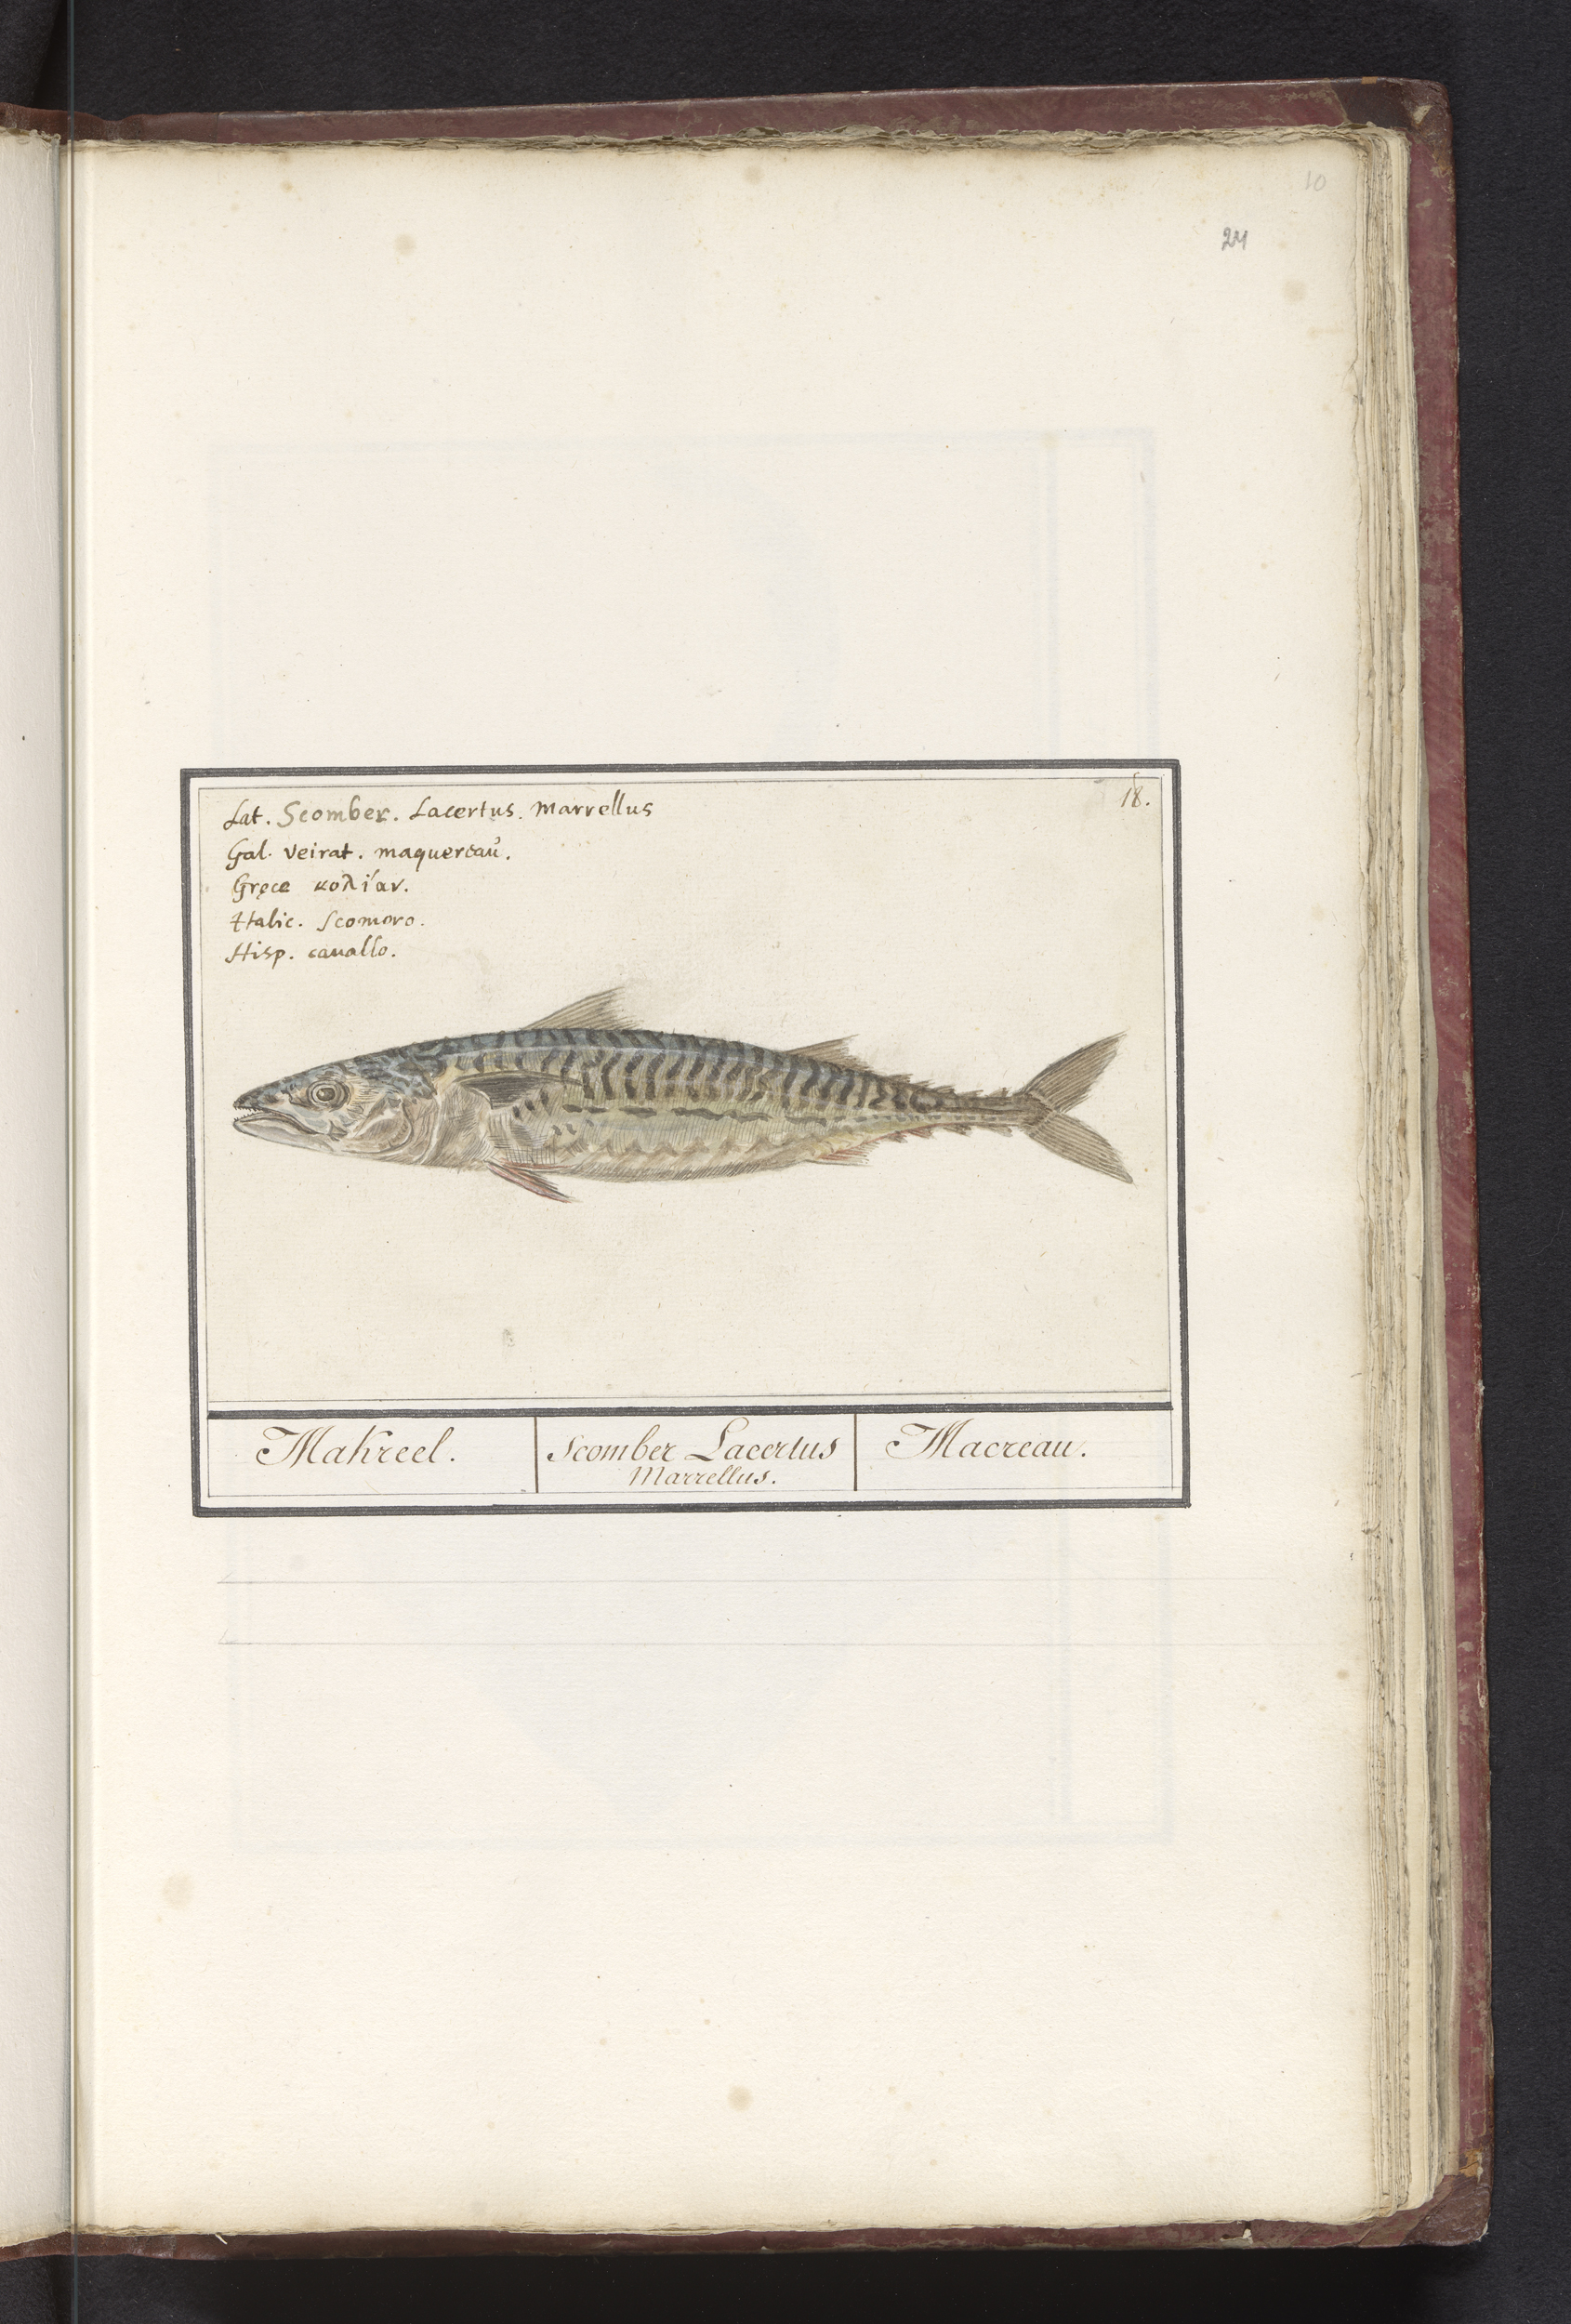 10
24
18.
Lat. Scomber. Lacertus. Marrellus
Gal. veirat. maquereau.
Gręce κολίαν.
Italic. Scomoro.
Hisp. cauallo.
Makreel.
Scomber Lacertus
Marrellus.
Macreau.